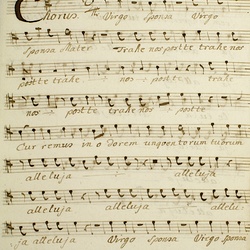 Chorus Virgo Sponsa Virgo
Sponsa Mater Trahe nos post te trahe nos
post te trahe nos post te
nos post te trahe nos post te
Cur remus in o dorem unguentorum tuorum
alleluja alleluja
alleluja alleluja allelu
ja alleluja Virgo Sponsa Virgo Sponsa